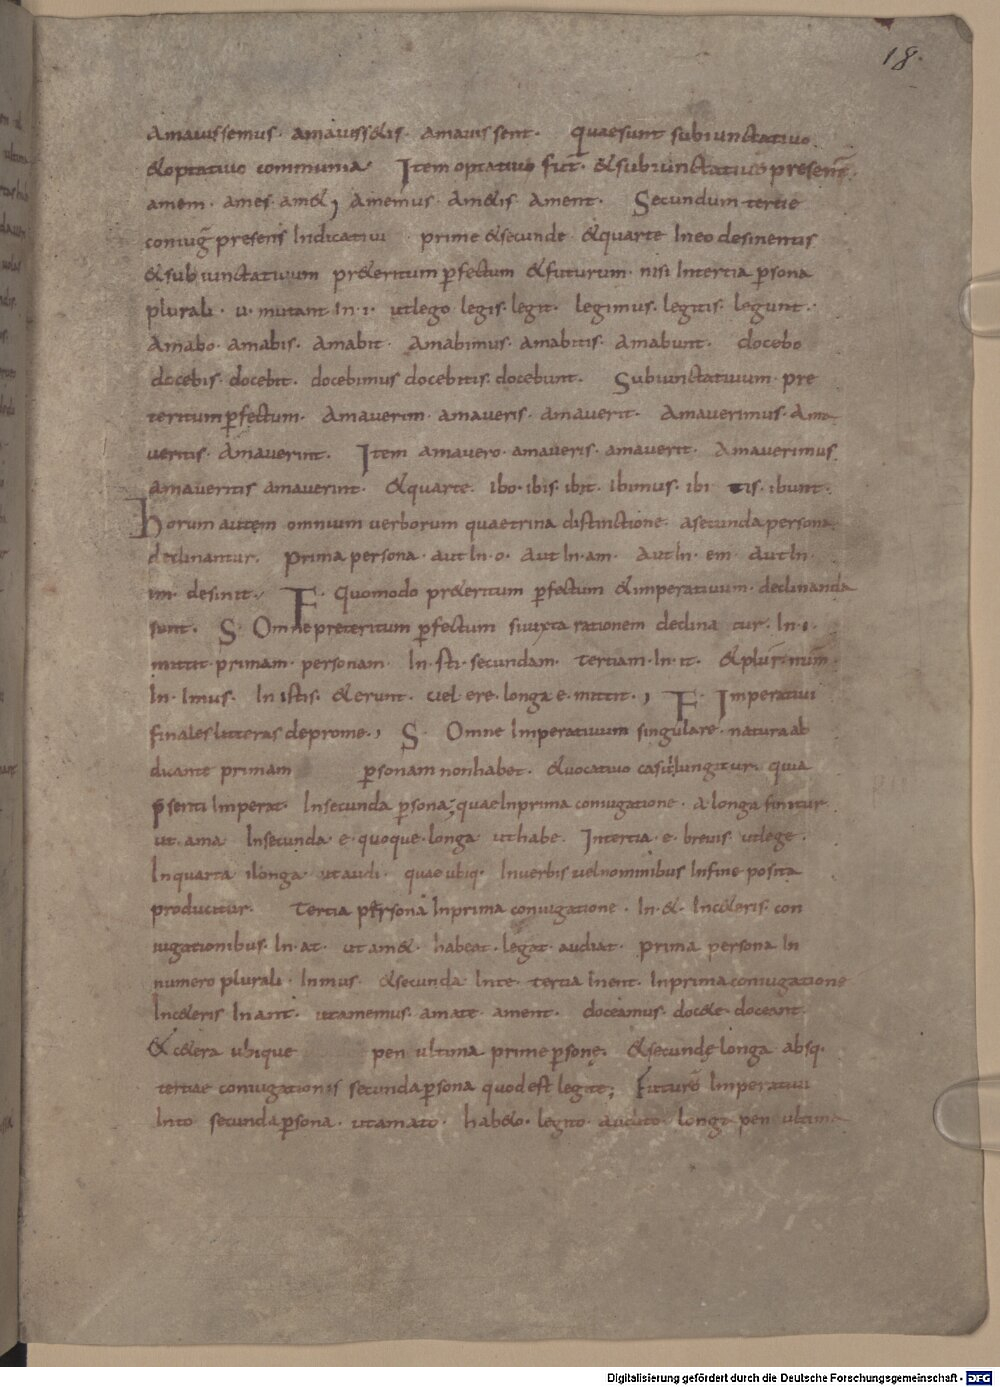 18.
amavissemus· amavissetis· amavissent· quae sunt subiunctativo
& optativo communia· Item optativo fut̄· & subiunctativo presens̄·
amem· ames· am&; amemus· am&is· ament· Secundum tertie
coniug̅ presens Indicativi prime & secunde· & quarte In eo desinentis
& subiunctativum pr&eritum p̄fectum & futurum· nisi In tertia p̄sona
plurali· u· mutant In· i· ut lego legis· legit· legimus· legitis· legunt·
Amabo· amabis· amabit· Amabimus· amabitis· amabunt· docebo
docebis· docebit· docebimus docebitis· docebunt· Subiunctativum pre
teritum p̄fectum· Amaverim· amaveris· amaverit· Amaverimus· Ama
veritis· Amaverint· Item amavero· amaveris· amaverit· Amaverimus
amaveritis amaverint· & quarte· Ibo· ibis· ibit· Ibimus· ibi tis· ibunt·
Horum autem omnium verborum quae trina distinctione· a secunda persona
declinantur· Prima persona· aut In· o· Aut In· am· Aut In· em· Aut In·
im· desinit· F· Quomodo pr&eritum p̄fectum & imperativum· declinanda
sunt· S· Omne preteritum p̄fectum si iuxta rationem declina tur· In· i·
mittit primam· personam· In· sti· secundam· tertiam· In· it· & plur· num̄·
In· Imus· In istis· & erunt· vel ere· longa e· mittit·; F· Imperativi
finales litteras deprome·; S· Omne Imperativum singulare· natura ab
dicante primam p̄sonam non habet· & vocativo casui Iungitur· quia
p̄senti Imperat· In secunda p̄sona; quae In prima coniugatione· A longa finitur
ut· ama In secunda e· quoque· longa ut habe· In tertia· e· brevis ut lege·
In quarta i longa· ut audi· quae ubiq· In verbis vel nominibus In fine posita
producitur· Tertia persona In prima coniugatione· In· &· In c&eris· con
iugationibus· In· at· ut am&· habeat· legat· audiat· prima persona In
numero plurali· In mus· & secunda In te· tertia In ent· In prima coniugatione
In c&eris In ant· ut amemus· amate ament· doceamus· doc&e· doceant·
& c&era ubique pen ultima prime p̄sonę· & secundę longa absq·
tertiae coniugationis secunda p̄sona quod est legite; Futuro Imperativi
In to secunda p̄sona· ut amato· hab&o· legito· audito· longa pen ultima
Digitalisierung gefördert durch die Deutsche Forschungsgemeinschaft - DFG